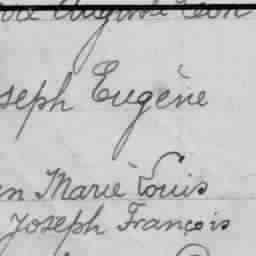 Auguste Léon
seph Eugène
Marie Louis
Joseph François